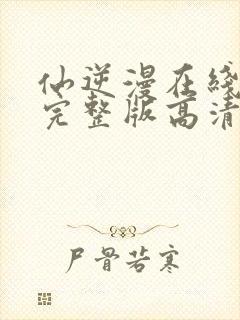 仙逆漫在线
完整版高清
尸骨若寒